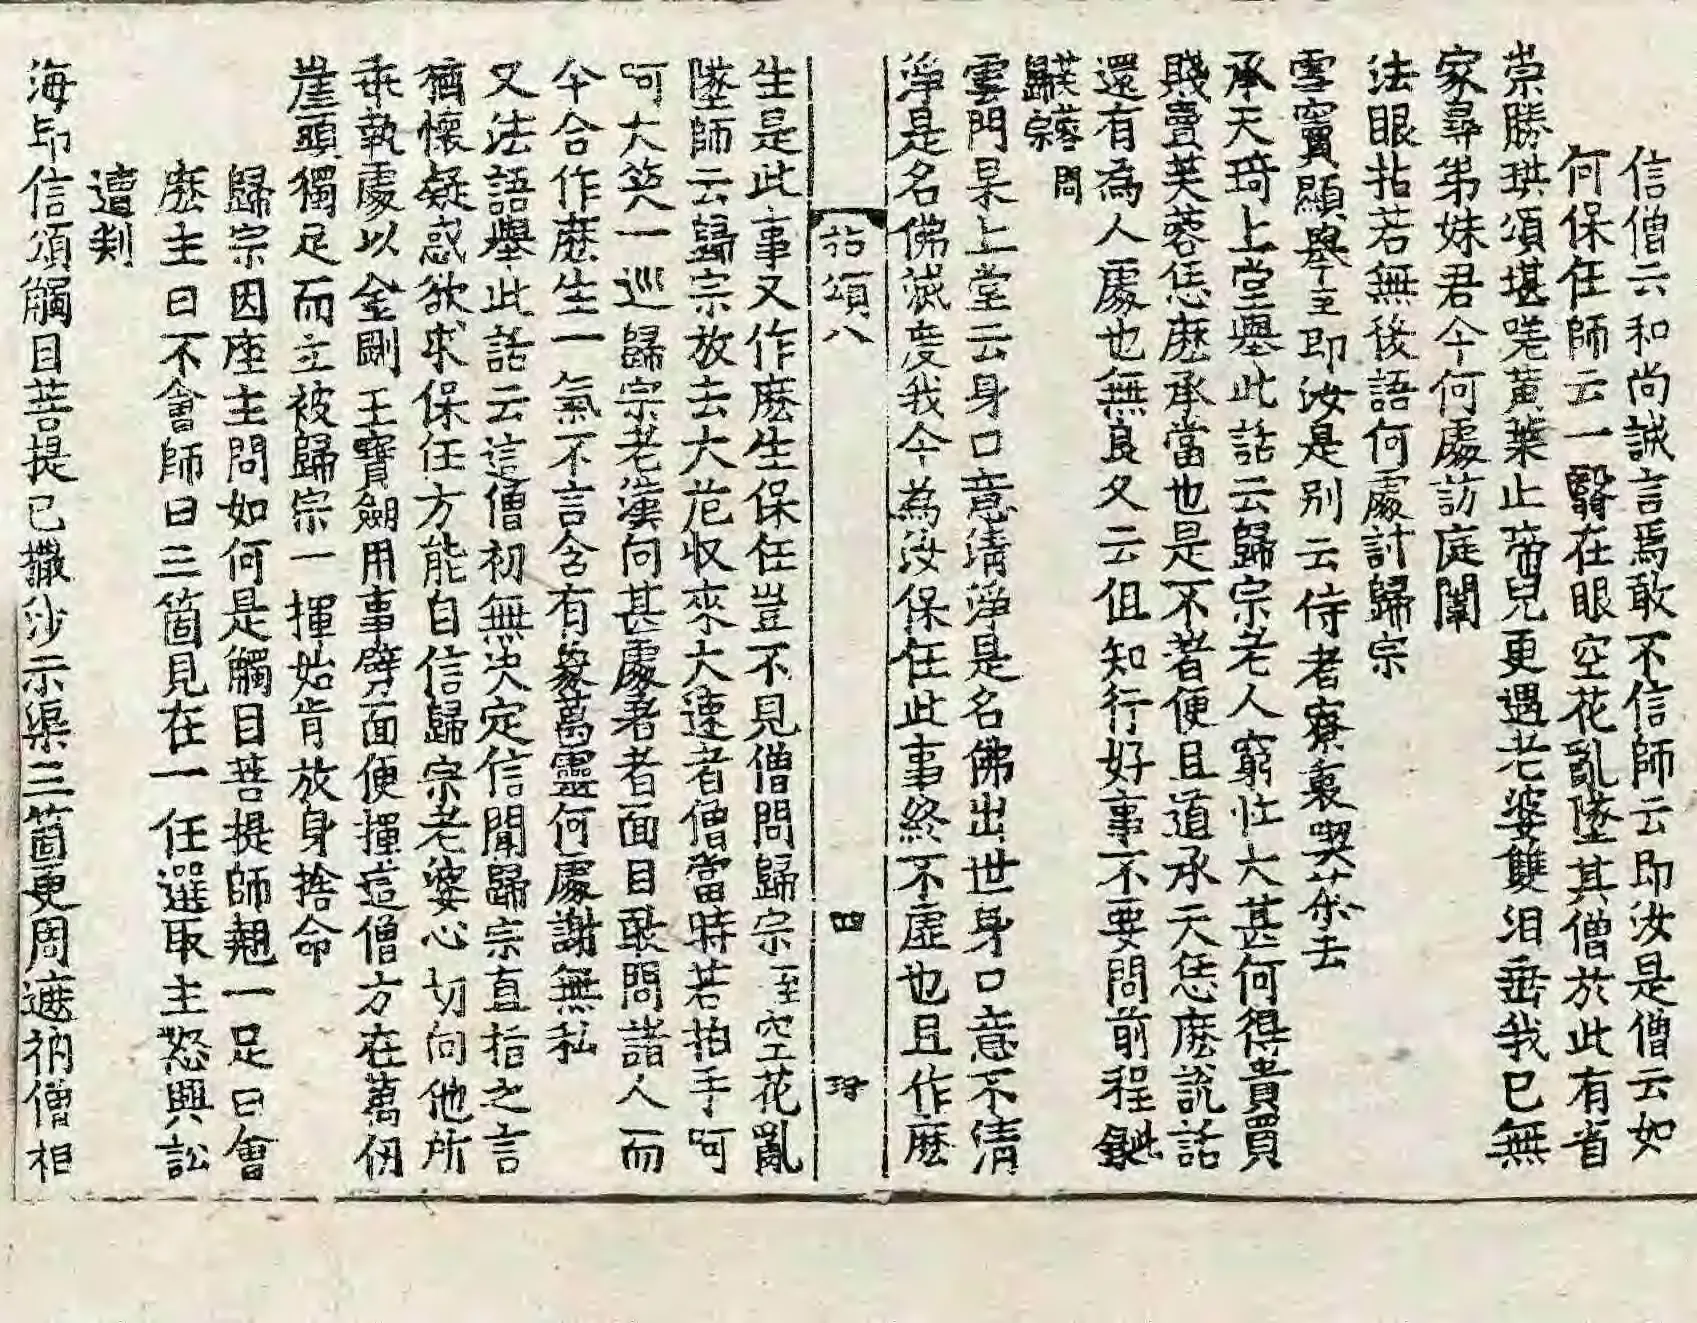 信僧云和尚誠言焉敢不信師云即汝是僧云如
何保任師云一翳在眼空花亂墜其僧於此有省
崇勝珙頌堪嗟黃葉止啼兒更遇老婆雙泪垂我已無
家尋弟妹君今何處訪庭闈
法眼拈若無後語何處討歸宗
雪竇顯舉至即汝是別云侍者寮裏喫茶去
承天琦上堂舉此話云歸宗老人窮性大甚何得貴買
賤賣芙蓉恁麽承當也是不著便且道承天恁麽說話
還有為人處也無良久云但知行好事不要問前程
芙蓉問歸宗
雲門杲上堂云身口意清淨是名佛出世身口意不清
淨是名佛滅度我今為汝保任此事終不虛也且作麽
拈頌八 四
生是此事又作麽生保任豈不見僧問歸宗至空花亂
墜師云歸宗放去大范收來大速者僧當時若拍手呵
呵大笑一巡歸宗老漢向甚處著者面目敢問諸人而
今合作麽生一氣不言含有象萬靈何處謝無私
又法語舉此話云這僧初無決定信聞歸宗直指之言
猶懷疑惑欲求保任方能自信歸宗老婆心切向他所
乖執處以金剛王寶劒用事劈面便揮這僧方在萬仞
崖頭獨足而立被歸宗一揮始肯放身捨命
歸宗因座主問如何是觸目菩提師翹一足曰會
麽主曰不會師曰三箇見在一任選取主怒興訟
遭刾
海印信頌觸目菩提已撒沙示渠三箇更周遮衲僧相